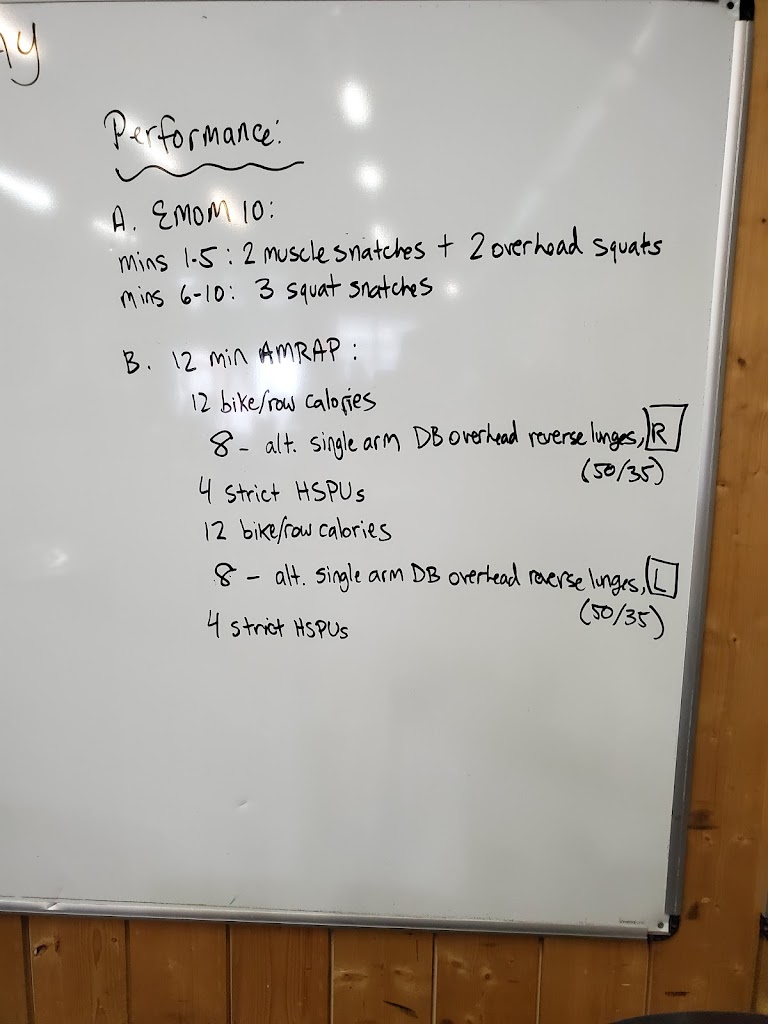 AY
Performance:
A. EMOM 10:
mins 1-5: 2 muscle snatches + 2 overhead squats
mins 6-10: 3 squat snatches
B. 12 min AMRAP:
12 bike/row calories
8 - alt. single arm DB overhead reverse lunges, R
(50/35)
4 strict HSPUs
12 bike/row calories
8 - alt. single arm DB overhead reverse lunges, L
(50/35)
4 strict HSPUs